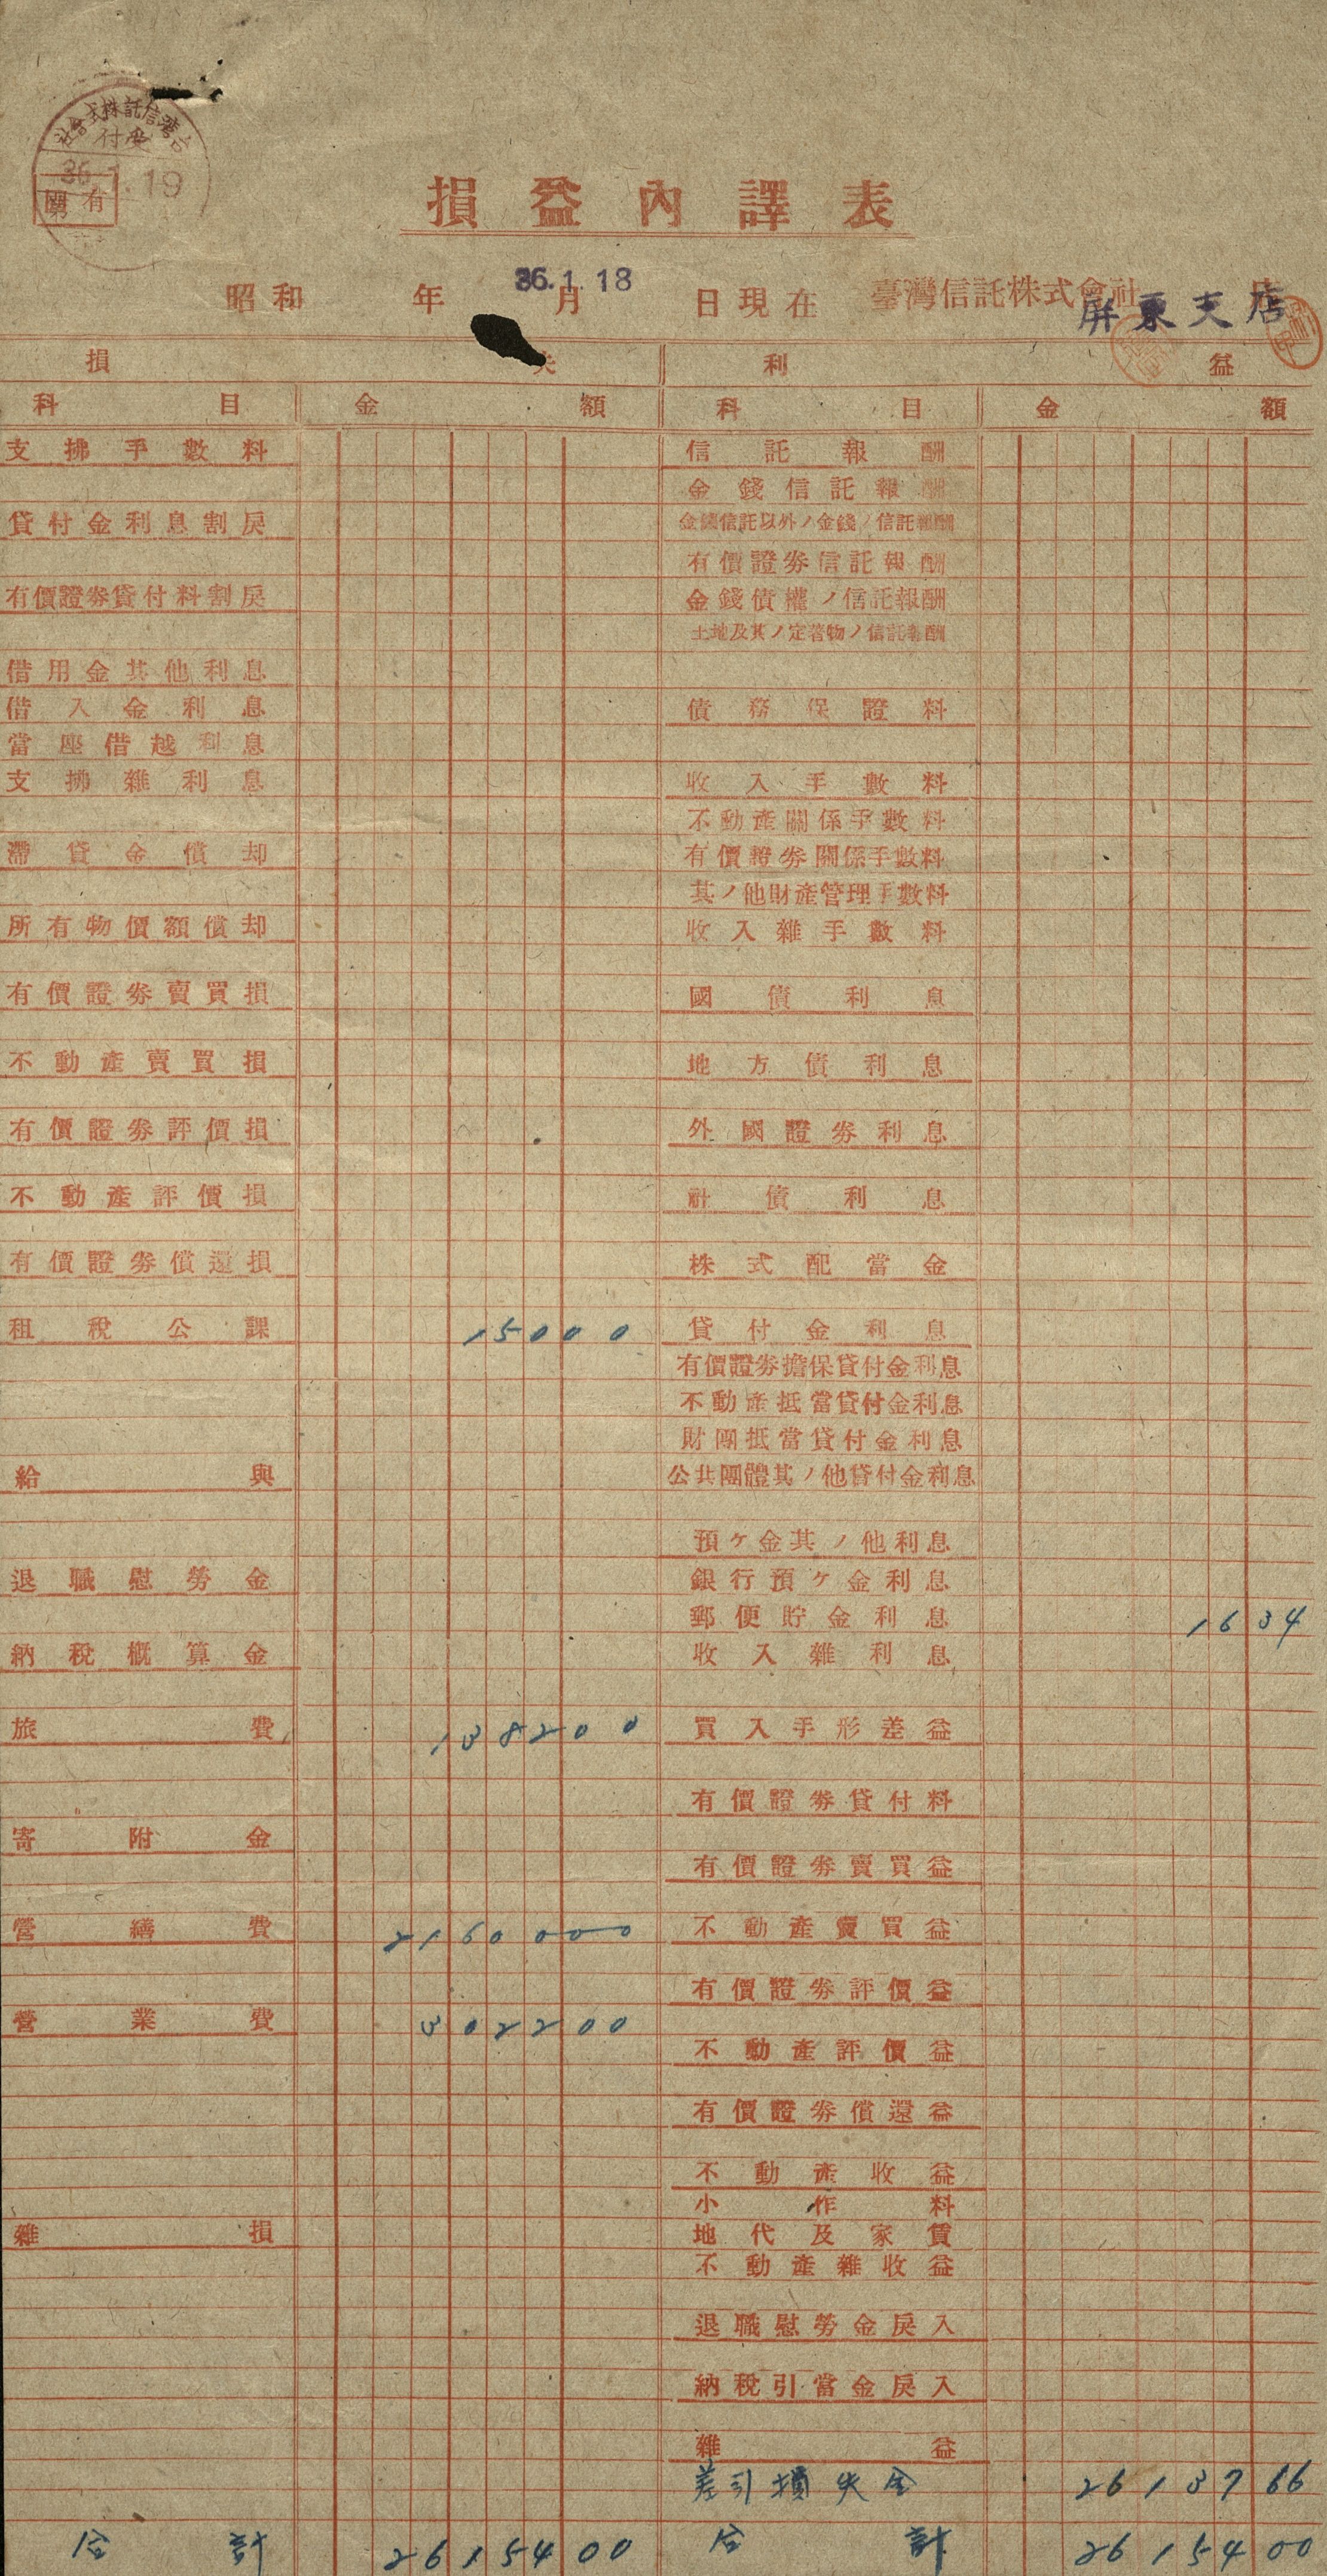 臺灣信託株式會社
受付
36.1.19
有
損益內譯表
昭和 年 月 日現在 臺灣信託株式會社 店
36.1.18
屏東支店
損 失 利 益
科目 金額 科目 金額
支拂手數料 信託報酬
金錢信託報酬
貸付金利息割戾 金錢信託以外ノ金錢ノ信託報酬
有價證券信託報酬
有價證券貸付料割戾 金錢債權ノ信託報酬
土地及其ノ定著物ノ信託報酬
借用金其他利息
借入金利息 債務保證料
當座借越利息
支拂雜利息 收入手數料
不動產關係手數料
滯貸金償却 有價證券關係手數料
其ノ他財產管理手數料
所有物價額償却 收入雜手數料
有價證券賣買損 國債利息
不動產賣買損 地方債利息
有價證券評價損 外國證券利息
不動產評價損 社債利息
有價證券償還損 株式配當金
租稅公課 15000 貸付金利息
有價證券擔保貸付金利息
不動產抵當貸付金利息
財團抵當貸付金利息
給與 公共團體其ノ他貸付金利息
預ケ金其ノ他利息
退職慰勞金 銀行預ケ金利息
郵便貯金利息 1634
納稅概算金 收入雜利息
旅費 138200 買入手形差益
有價證券貸付料
寄附金
有價證券賣買益
營繕費 2160000 不動產賣買益
有價證券評價益
營業費 302200
不動產評價益
有價證券償還益
不動產收益
小作料
雜損 地代及家賃
不動產雜收益
退職慰勞金戾入
納稅引當金戾入
雜益
差引損失金 2613766
合計 2615400 合計 2615400